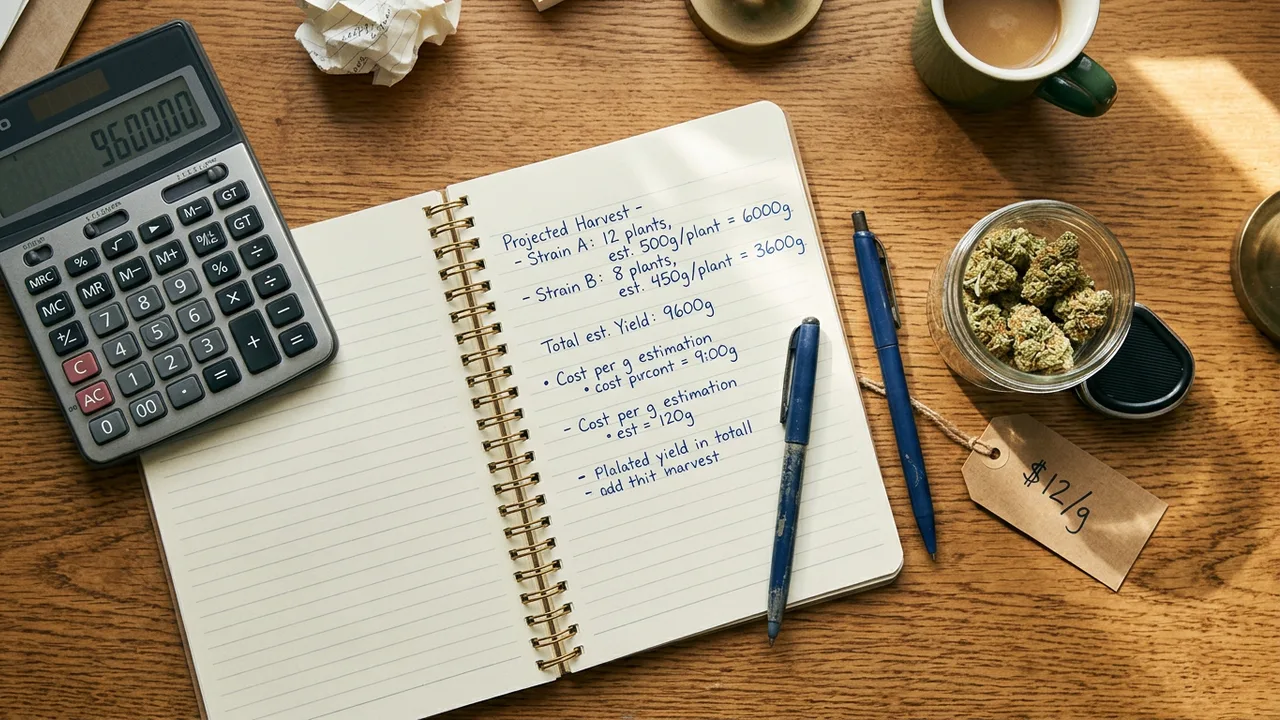 9600.00
GT
MRC
%
√
▶
M-
GT
MC
MR
M-
M+
%
÷
÷
+/-
7
8
9
×
−
C
4
5
6
+
=
AC
1
2
3
=
0
00
.
Projected Harvest -
- Strain A: 12 plants,
est. 500g/plant = 6000g.
- Strain B: 8 plants,
est. 450g/plant = 3600g
Total est. Yield: 9600g
• Cost per g estimation
• cost purcont = 9:00g
- Cost per g estimation
• est = 120g
- Plalated yield in totall
- add thit marvest
$12/g